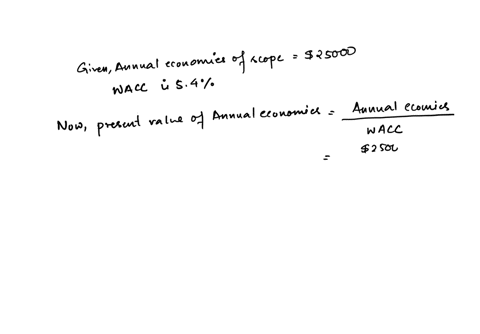 Given, Annual economies of scope = $25000
WACC is 5.4%
Now, present value of Annual economies = Annual ecomies
WACC
= $250